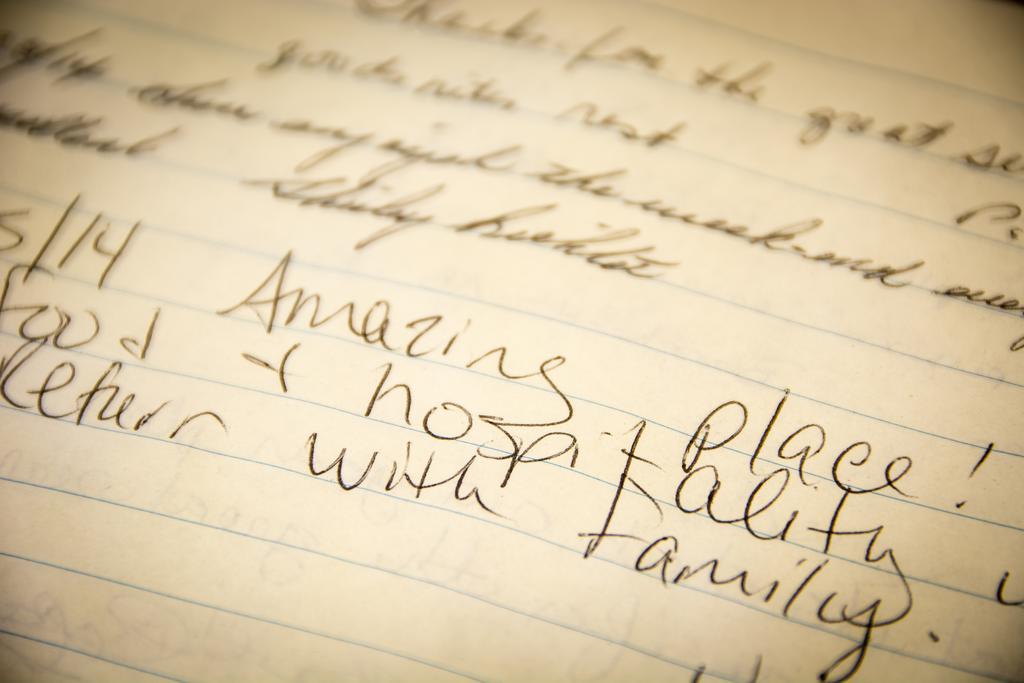 Thanks for the great
good nites rest
/14 when enjoyed the week-end
Shirley
5/14 Amazing place!
food + hospitality
Return with family.